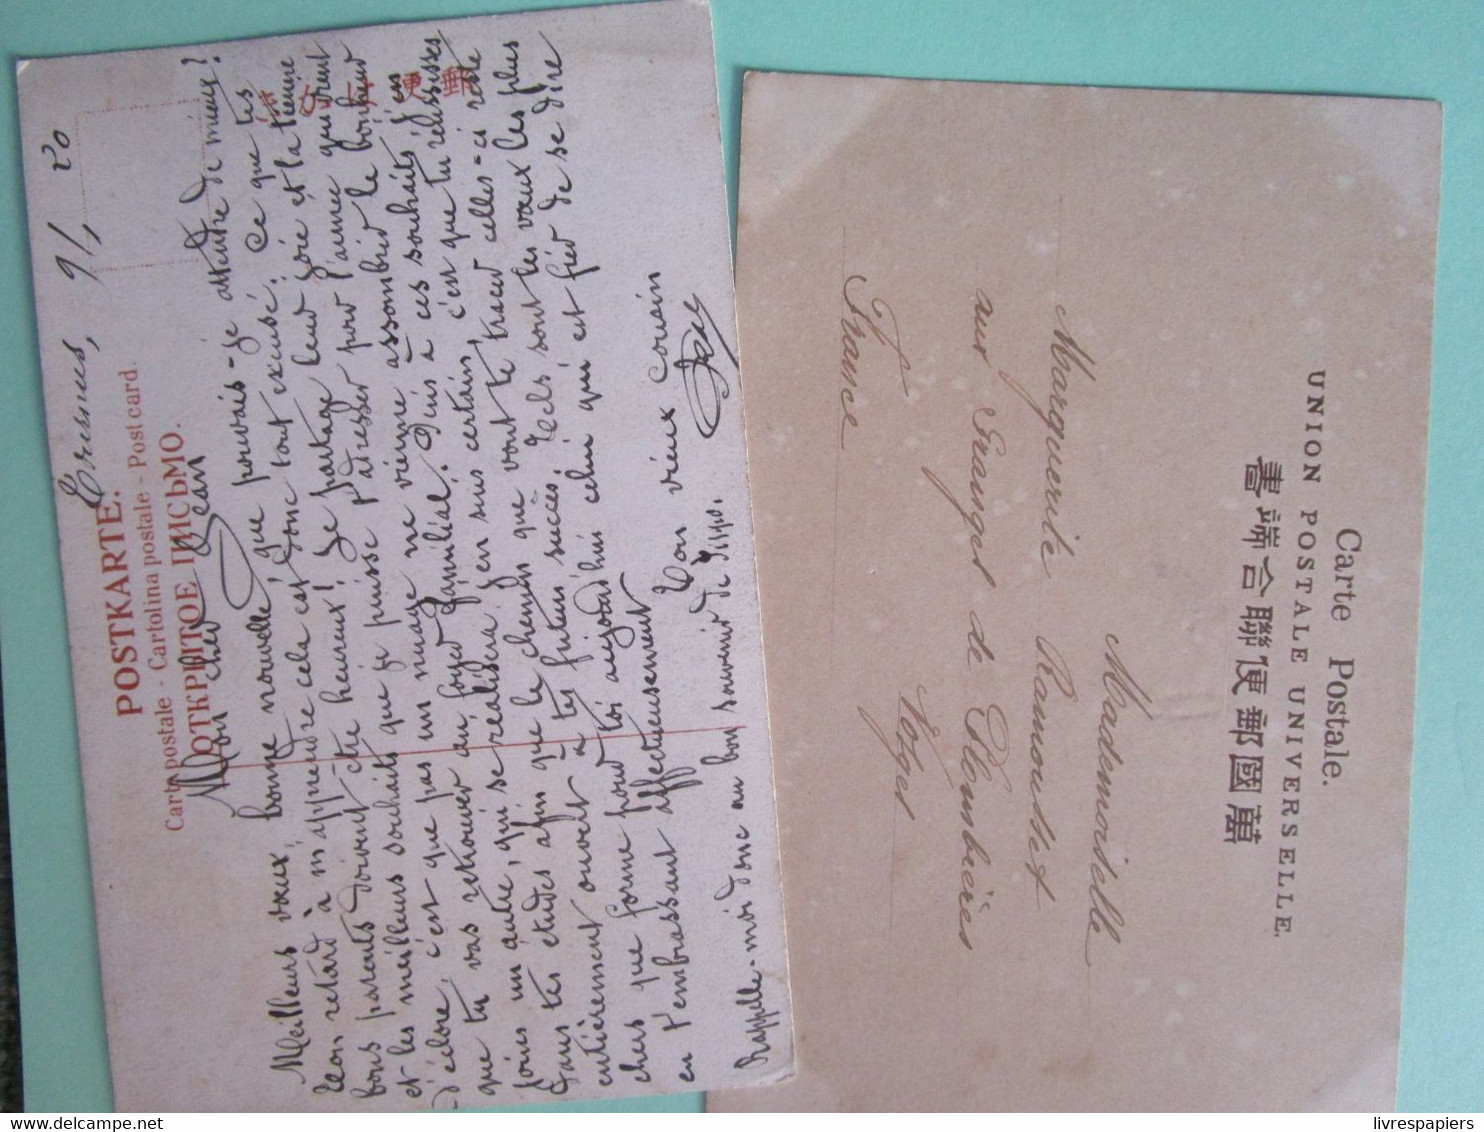 Fresnes, 9/1 20
POSTKARTE.
Carte postale - Cartolina postale - Post card.
ОТКРЫТОЕ ПИСЬМО.
Mon cher Jean
Meilleurs vœux, bonne nouvelle, que pouvais-je attendre de mieux?
Ton retard à m'apprendre cela est donc tout excusé. Ce que tes
bons parents doivent être heureux! Je partage leur joie et la tienne
et les meilleurs souhaits que je puisse t'adresser pour l'année qui vient
d'éclore, c'est que pas un nuage ne vienne assombrir le bonheur
que tu vas retrouver au foyer familial. Puis à ces souhaits j'en
joins un autre, qui se réalisera j'en suis certain, c'est que tu réussisses
dans tes études afin que le chemin que vont te tracer celles-ci reste
entièrement ouvert à tes futurs succès. Tels sont les vœux les plus
chers que forme pour toi aujourd'hui celui qui est fier de se dire
en t'embrassant affectueusement
Ton vieux cousin
Rappelle-moi donc au bon souvenir de
Carte Postale.
UNION POSTALE UNIVERSELLE.
萬國郵便聯合端書
Mademoiselle
Marguerite Ramouset
aux Granges de Plombières
Vosges
France
livrespapiers